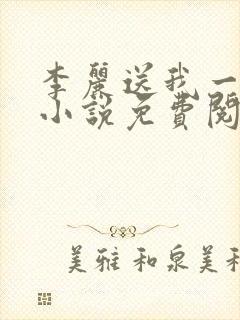 李麗送我一
小說免費閱
美雅和泉美和